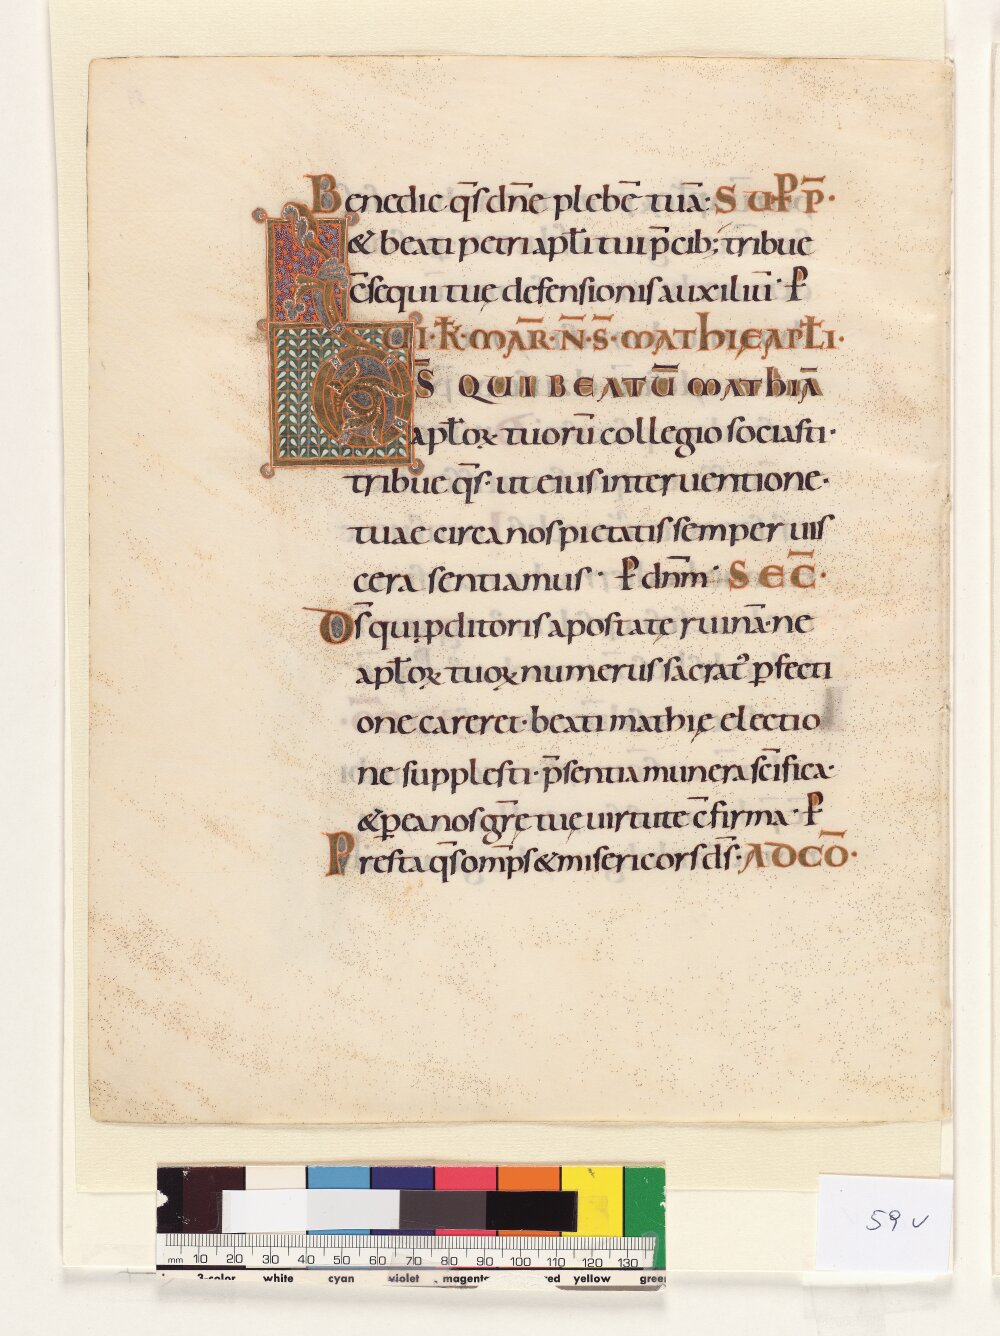 Benedic q̄s dn̄e plebē tuā· SUP P̄·
& beati petri apłi tui p̄cib; tribue
c̄sequi tuę defensionis auxiliū· P
VI·K̄·MAR̄·N̄·S̄·MATHIĘ APŁI·
DS̄ QUI BEATŪ MATHIĀ
apłoꝝ tuorū collegio sociasti·
tribue q̄s· ut eius interuentione·
tuae circa nos pietatis semper uis
cera sentiamus· P dnm̄· SEC̄·
Ds̄ qui ꝓditoris apostatę ruinā· ne
apłoꝝ tuoꝝ numerus sacrat᷒ ꝑfecti
one careret· beati mathię electio
ne supplesti· p̄sentia munera sc̄ifica·
& ꝑ ea nos gr̄ę tuę uirtute c̄firma· P
Presta q̄s omp̄s & misericors ds̄· AD CŌ·
59v
mm 10 20 30 40 50 60 70 80 90 100 110 120 130
3-color white cyan violet magenta red yellow green